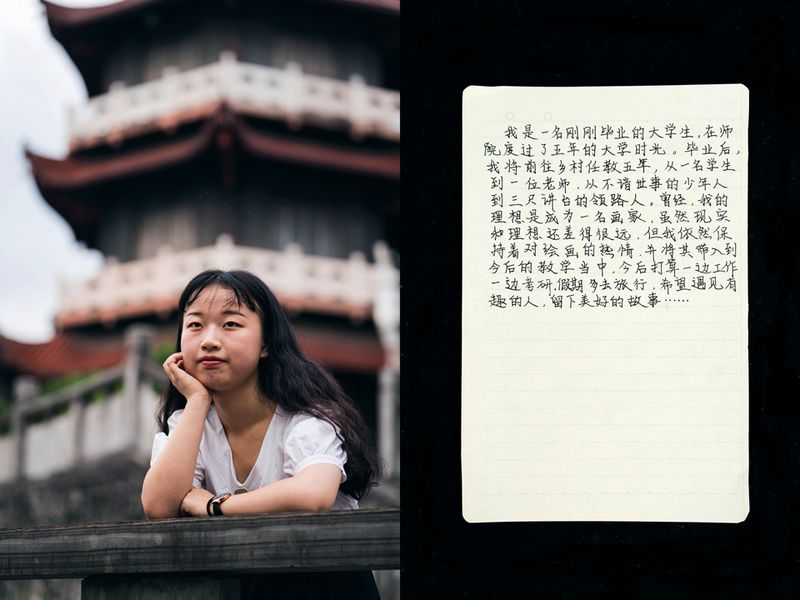 我是一名刚刚毕业的大学生，在师
院度过了五年的大学时光。毕业后，
我将前往乡村任教五年，从一名学生
到一位老师，从不谙世事的少年人
到三尺讲台的领路人。曾经，我的
理想是成为一名画家，虽然现实
和理想还差得很远，但我依然保
持着对绘画的热情，并将其带入到
今后的教学当中，今后打算一边工作
一边考研，假期多去旅行，希望遇见有
趣的人，留下美好的故事……